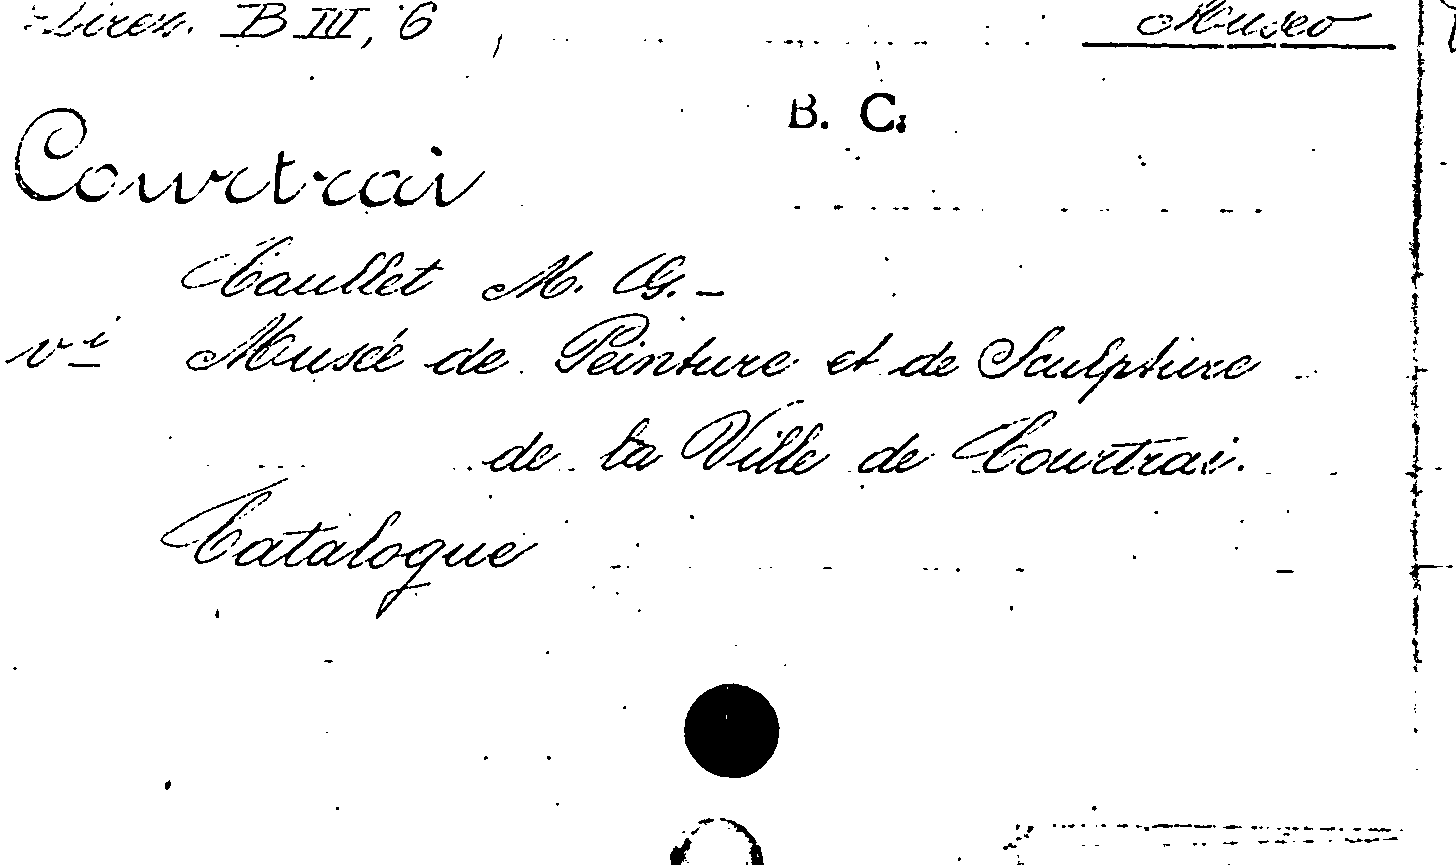 Direz. B III, 6 Museo
B. C.
Courtrai
Caullet M. G.-
vi Musée de Peinture et de Sculpture
de la Ville de Courtrai.
Catalogue